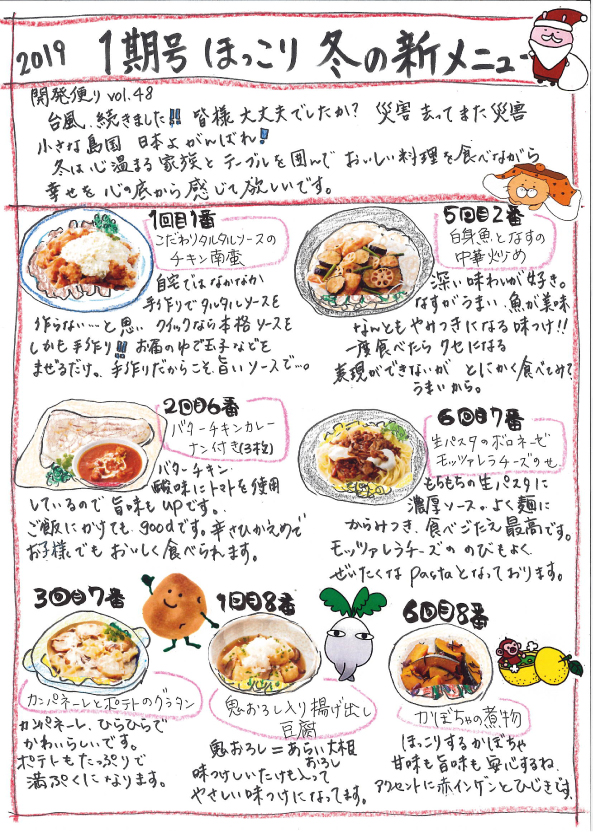 2019 1期号 ほっこり 冬の新メニュー
開発便り vol.48
台風、続きました!! 皆様 大丈夫でしたか? 災害 去ってまた災害
小さな島国 日本よがんばれ!
冬は心温まる家族と テーブルを囲んで おいしい料理を食べながら
幸せを 心の底から 感じて欲しいです。
1回1番
こだわりタルタルソースの
チキン南蛮
自宅では なかなか
手作りで タルタルソースを
作らない…と思い クイックなら本格ソースを
しかも手作り!! お湯の中で玉子などを
まぜるだけ。手作りだからこそ旨いソースで…。
5回2番
白身魚となすの
中華炒め
深い味わいが好き。
なすがうまい 魚が美味
なんともやみつきになる味つけ!!
一度食べたら クセになる
表現ができないが とにかく食べてみて
うまいから。
2回6番
バターチキンカレー
ナン付き(3枚)
バターチキン
酸味にトマトを使用
しているので 旨味もupです。
ご飯にかけても、goodです。辛さひかえめで
お子様でも おいしく食べられます。
6回7番
生パスタのボロネーゼ
モッツァレラチーズのせ
もちもちの生パスタに
濃厚ソース。よく麺に
からみつき、食べごたえ最高です。
モッツァレラチーズの のびもよく
ぜいたくな pastaとなっております。
3回7番
カンパネーレとポテトのグラタン
カンパネーレ、ひらひらで
かわいらしいです。
ポテトもたっぷりで
満ぷくになります。
1回8番
鬼おろし入り揚げ出し
豆腐
鬼おろし=あらい大根
おろし
味つけしいたけも入って
やさしい味つけになってます。
6回8番
かぼちゃの煮物
ほっこりするかぼちゃ
甘味も旨味も安心するね、
アクセントに赤インゲンとひじきです。